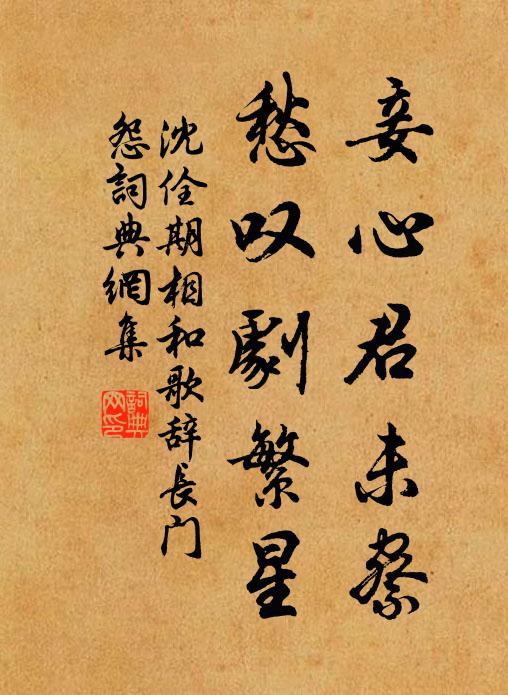 妾心君未察
愁叹劇繁星
沈佺期相和歌辞長门
怨詞典網集
詞典
网印